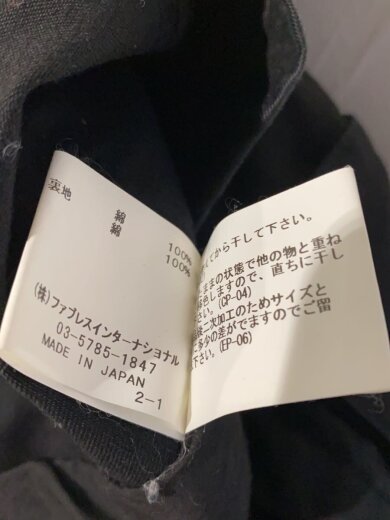 綿 100%
裏地 綿 100%
(株)ファブレスインターナショナル
03-5785-1847
MADE IN JAPAN
2-1
してから干して下さい。
ままの状態で他の物と重ね
色しますので、直ちに干し
さい。(CP-04)
後二次加工のためサイズと
に多少の差がでますのでご留
下さい。(EP-06)